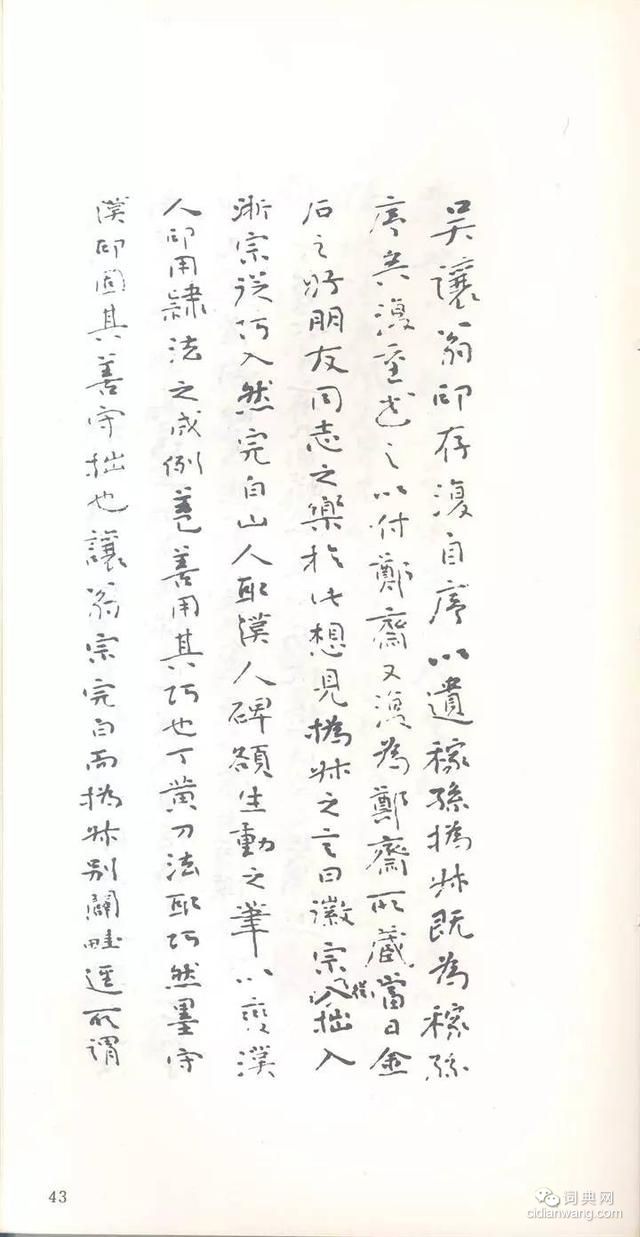 吳讓翁印存復自序以遺稼孫撝叔既為稼孫
序矣復重书之以付鄭齋又復為鄭齋所藏當日金
石之好朋友同志之樂於此想見撝叔之言曰徽宗從拙入
浙宗從巧入然完白山人取漢人碑額生動之筆以變漢
人印用隸法之成例蓋善用其巧也丁黃刀法取巧然墨守
漢印固其善守拙也讓翁宗完白而撝叔別闢畦逕所謂
43
词典网
cidianwang.com